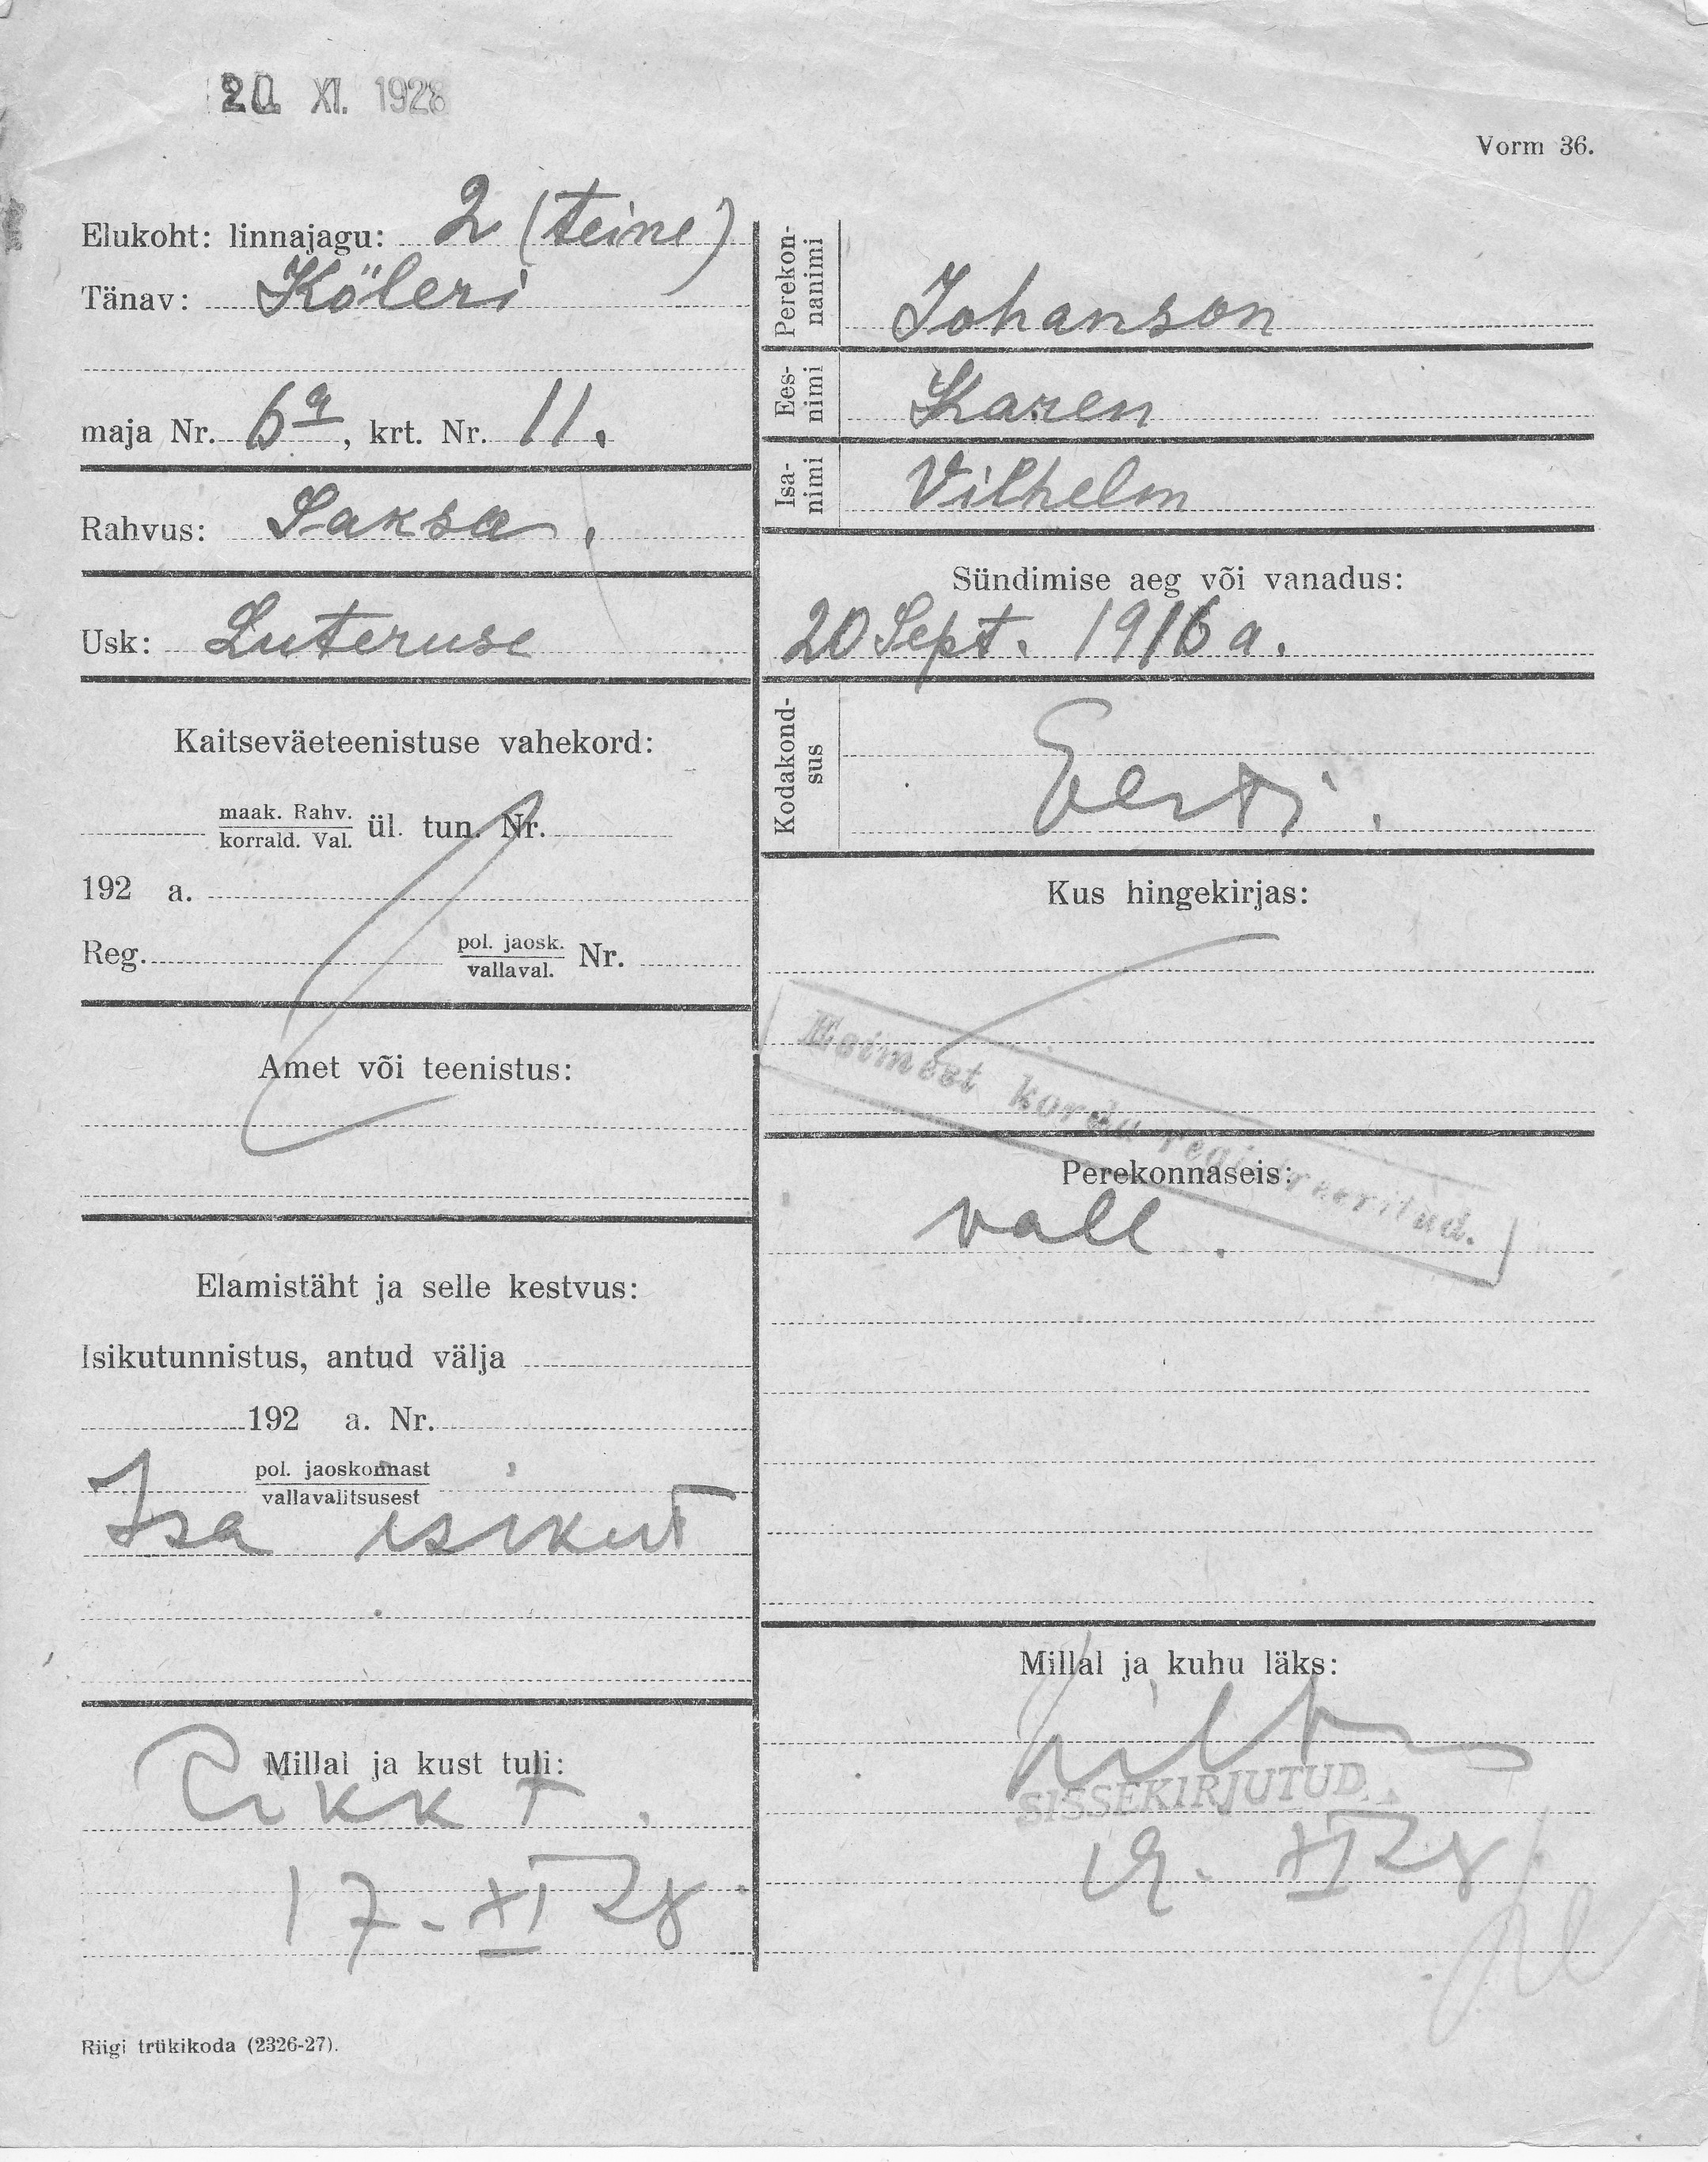 20. XI. 1928
Vorm 36.
Elukoht: linnajagu: 2 (teine)
Tänav: Köleri
maja Nr. 6a, krt. Nr. 11.
Rahvus: Saksa.
Usk: Luteruse
Kaitseväeteenistuse vahekord:
maak. Rahv.
korrald. Val. ül. tun. Nr.
192 a.
Reg. pol. jaosk.
vallaval. Nr.
Amet või teenistus:
Elamistäht ja selle kestvus:
Isikutunnistus, antud välja
192 a. Nr.
pol. jaoskonnast
vallavalitsusest
Isa isikut
Millal ja kust tuli:
Pikk t.
17. XI 28
Perekon-
nanimi Johanson
Ees-
nimi Karen
Isa-
nimi Vilhelm
Sündimise aeg või vanadus:
20 Sept. 1916 a.
Kodakond-
sus Eesti.
Kus hingekirjas:
Esimest korda registreeritud.
Perekonnaseis:
vall.
Millal ja kuhu läks:
SISSEKIRJUTUD
19. XI 28
Riigi trükikoda (2326-27).